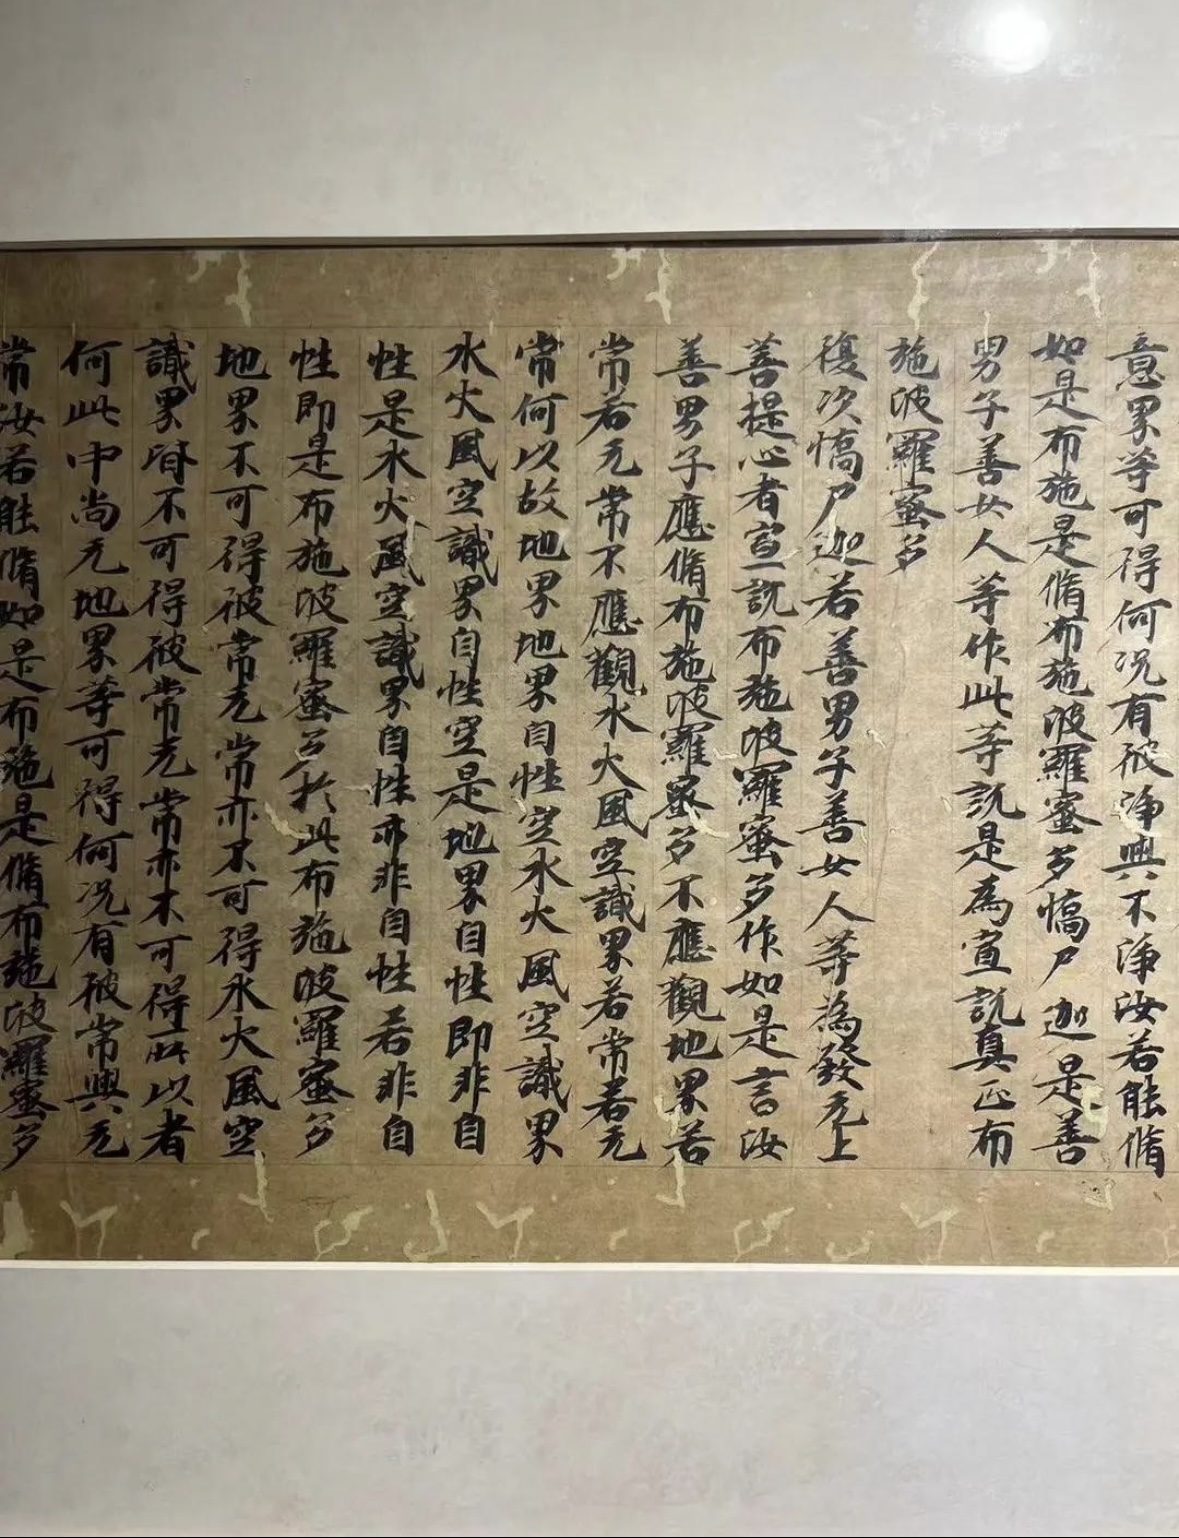 意界等可得何况有彼淨與不淨汝若能脩
如是布施是脩布施波羅蜜多憍尸迦是善
男子善女人等作此等説是為宣説真正布
施波羅蜜多
復次憍尸迦若善男子善女人等為發无上
菩提心者宣説布施波羅蜜多作如是言汝
善男子應脩布施波羅蜜多不應觀地界若
常若无常不應觀水火風空識界若常若无
常何以故地界地界自性空水火風空識界
水火風空識界自性空是地界自性即非自
性是水火風空識界自性亦非自性若非自
性即是布施波羅蜜多於此布施波羅蜜多
地界不可得彼常无常亦不可得水火風空
識界皆不可得彼常无常亦不可得所以者
何此中尚无地界等可得何况有彼常與无
常汝若能脩如是布施是脩布施波羅蜜多